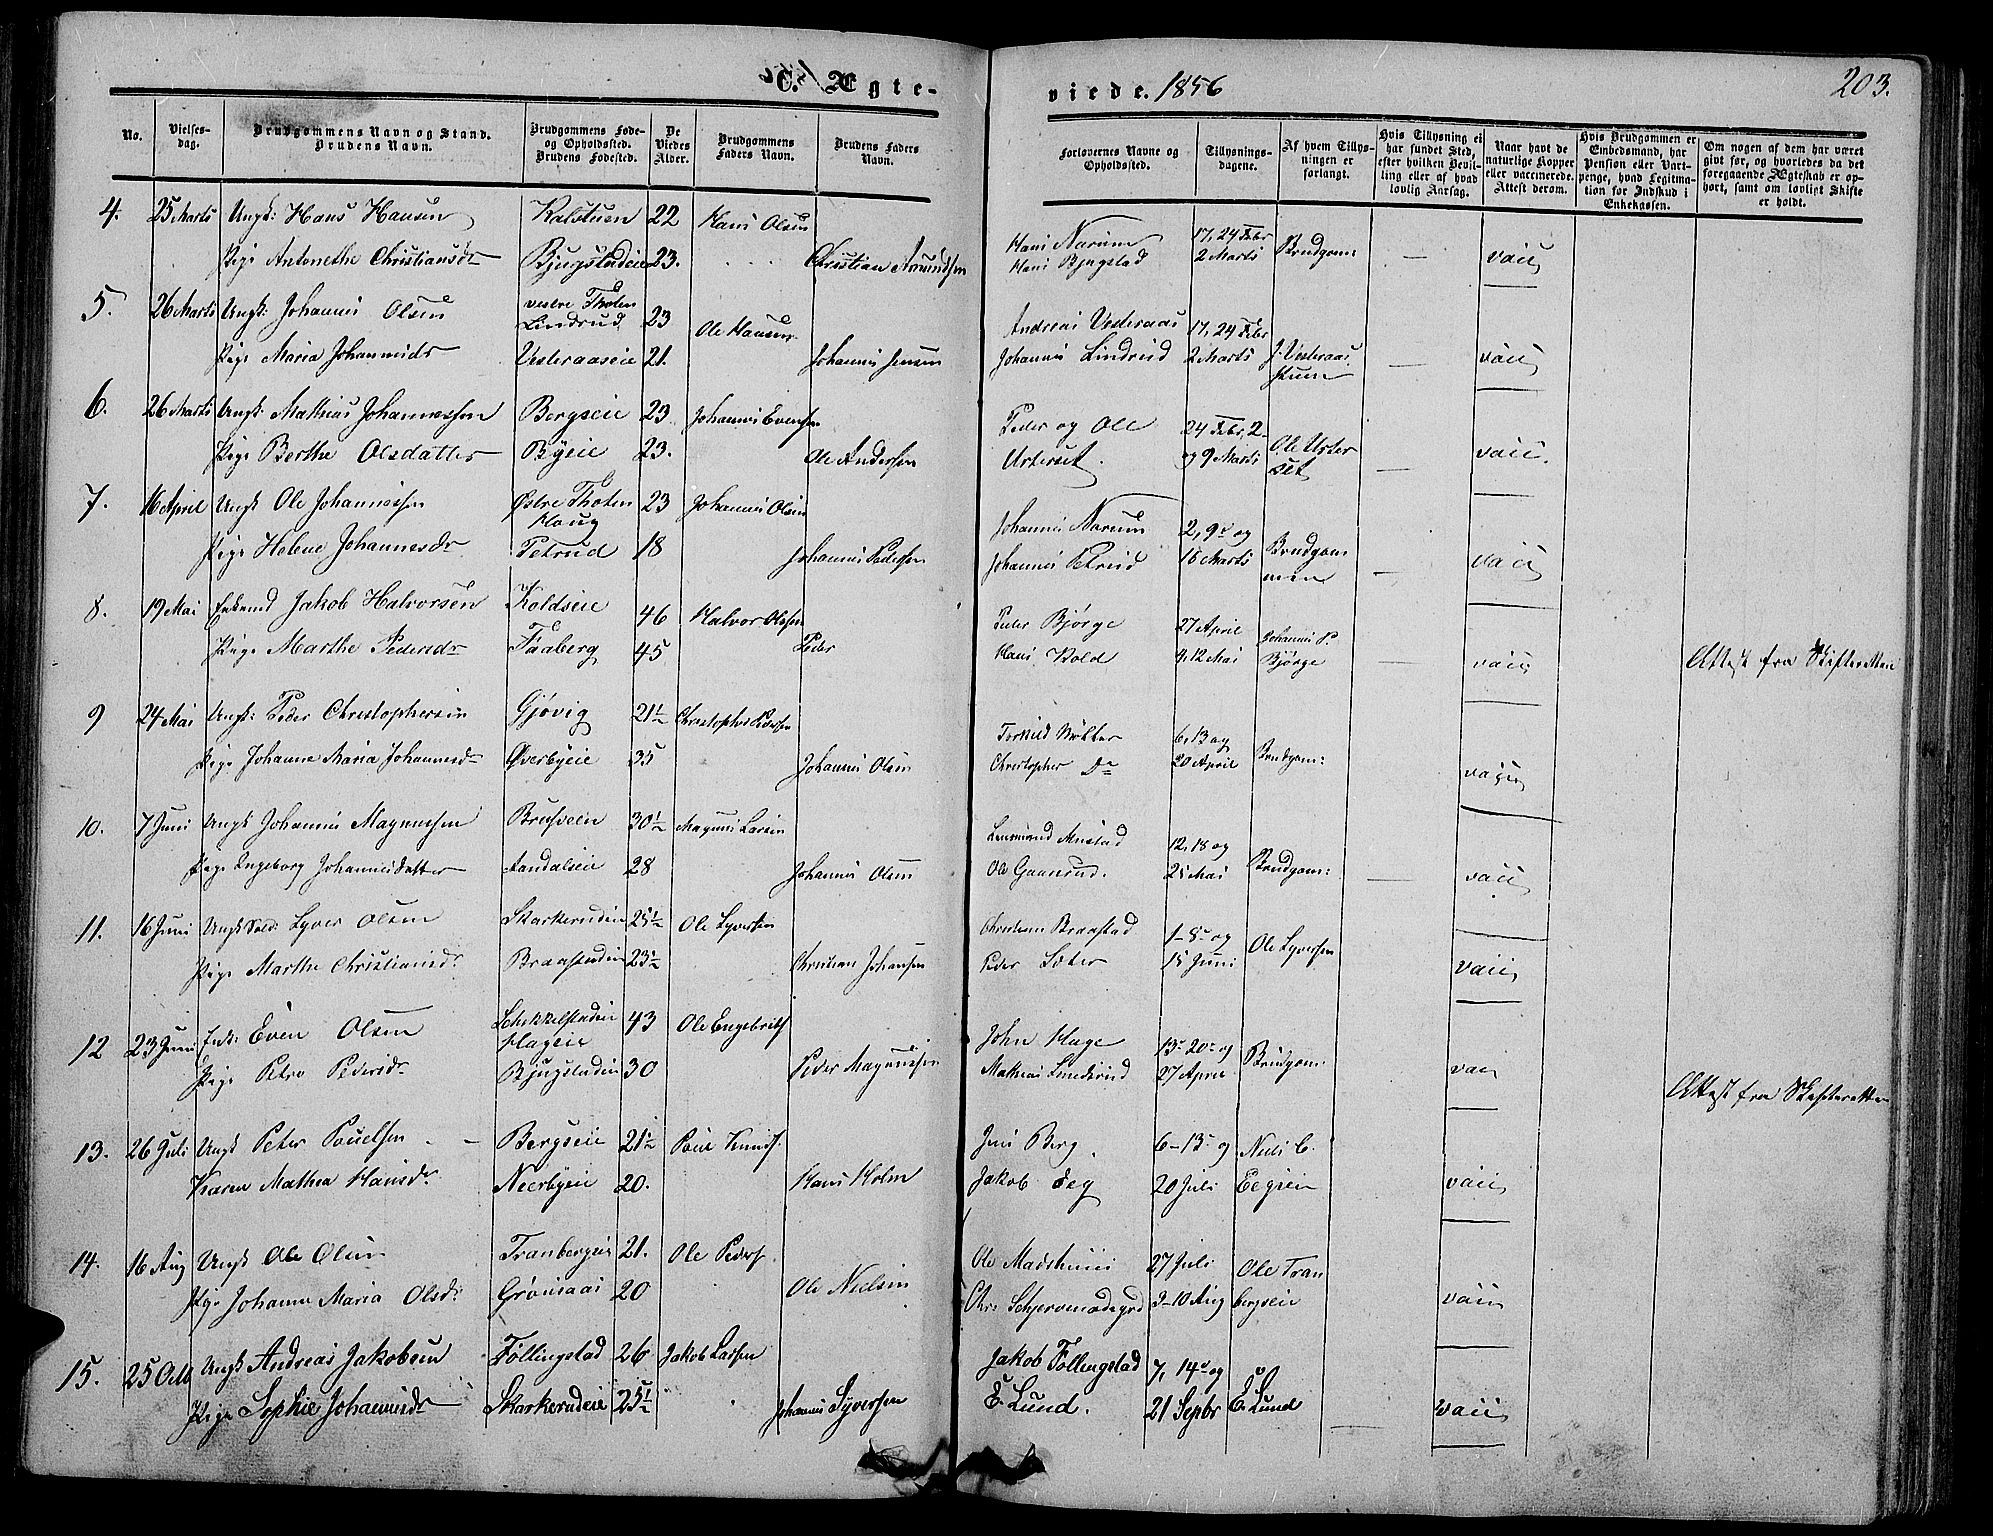 C. Ægte-
viede. 1856
203.
No.
Vielses-
dag.
Brudgommens Navn og Stand.
Brudens Navn.
Brudgommens Føde-
og Opholdssted.
Brudens Fødested.
De
Viedes
Alder.
Brudgommens
Faders Navn.
Brudens Faders
Navn.
Forlovernes Navne og
Opholdssted.
Tillysnings-
dagene.
Af hvem Tillys-
ningen er
forlangt.
Hvis Tillysning ei
har fundet Sted,
efter hvilken Bevil-
ling eller af hvad
lovlig Aarsag.
Naar havt de
naturlige Kopper
eller vaccinerede.
Attest derom.
Hvis Brudgommen er
Embedsmand, har
Pension eller Vart-
penge, hvad Legitima-
tion for Indskud i
Enkekassen.
Om nogen af dem har været
gift før, og hvorledes da det
foregaaende Ægteskab er op-
hørt, samt om lovligt Skifte
er holdt.
4. 25 Marts Ungk: Hans Hansen Kalstuen 22 Hans Olsen Hans Narum 17, 24 Febr Brudgom: vacc
Pige Antonethe Christiansdr Bjugstadeie 23. Christian Amundsen Hans Bjugstad 2 Marts
5. 26 Marts Ungk: Johannes Olsen vestre Thoten
Lindrud 23 Ole Hansen Andreas Vesteraas 17, 24 Febr
Pige Maria Johannesdr Vesteraaseie 21. Johannes Jensen Johannes Lindrud 2 Marts J. Vesteraas vacc
6. 26 Marts Ungk: Mathias Johannessen Bergseie 23 Johannes Evensen Peder og Ole 24 Febr, 2- Ole Urter
Pige Berthe Olsdatter Byeie 23. Ole Andersen Urterset. og 9 Marts set vacc.
7. 16 April Ungk Ole Johannessen Østre Thoten
Haug 23 Johannes Olsen Johannes Narum 2, 9 og Brudgom
Pige Helene Johannesdr Petrud 18 Johannes Pedersen Johannes Petrud 16 Marts men vacc
8. 19 Mai Enkemd Jakob Halvorsen Koldseie 46 Halvor Olsen Peder Bjørge 27 April Johannes P.
Pige Marthe Pedersdr Faaberg 45 Peder Hans Kold 4, 12 Mai Bjørge vacc Attest fra Skifteretten
9 24 Mai Ungk: Peder Christophersen Gjøvig 21½ Christopher Pedersen 6, 13 og Brudgom:
Pige Johanne Maria Johannesdr Øverbyeie 35 Johannes Olsen Christopher Do 20 April vacc
10. 7 Juni Ungk Johannes Magnussen 30½ Magnus Larsen Lensmand Mustad 12, 18 og Brudgom:
Pige Ingeborg Johannesdatter Aandalseie 28 Johannes Olsen Ole Gaansrud. 25 Mai vacc
11. 16 Juni Ungk Sold: Syver Olsen Skarkerudeie 25½ Ole Syversen Christian Braastad 1-8- og Ole Syversen
Pige Marthe Christiansdr Braastadeie 23½ Christian Johansen Peder Sæter 15 Juni vacc
12 23 Juni Enk: Even Olsen
Hageie 43 Ole Engebrits John Hage 13- 20- og Brudgom:
Pige Petra Pedersdr Bjugstadeie 30 Peder Magnussen Mathias Lunderud 27 April vacc Attest fra Skifteretten
13. 26 Juli Ungk Peter Pouelsen Bergseie 21½ Poul Knuds. Jens Berg 6-13- og Niels C.
Karen Mathea Hansdr Neerbyeie 20. Hans Holm Jakob Eeg 20 Juli Eegseie vacc
14. 16 Aug Ungk Ole Olsen Tranbergeie 21. Ole Peders. Ole Madshuus 27 Juli Ole Tran
Pige Johanne Maria Olsdr Grønaas 20 Ole Nielsen 3-10 Aug bergseie vacc
15. 25 Octb Ungk Andreas Jakobsen Føllingstad 26 Jakob Larsen Jakob Føllingstad 7, 14 og
Pige Sophie Johannesdr Skarkerudeie 25½ Johannes Syversen E. Lund. 21 Septbr E. Lund vacc